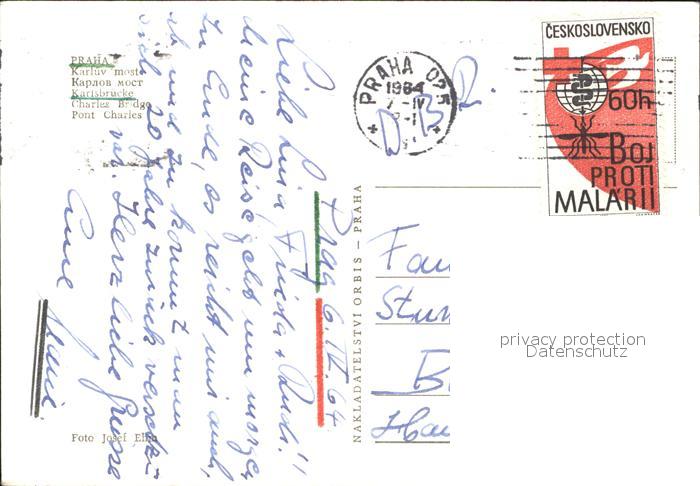 PRAHA
Karlův most
Карлов мост
Karlsbrücke
Charles Bridge
Pont Charles
Foto Josef Ehm
Prag 6.IV.64
Liebe Luise, Frieda + Rudi!
Meine Reise geht um morgen
zu Ende, es reicht mir auch,
ab und zu kommt man
sich 20 Jahre zurück versetzt
vor. Herzliche Grüsse
Eure
NAKLADATELSTVÍ ORBIS — PRAHA
PRAHA 025
1964
7-IV
ČESKOSLOVENSKO
60h
BOJ
PROTI
MALÁRII
Fam
Stu
B
Hau
privacy protection
Datenschutz